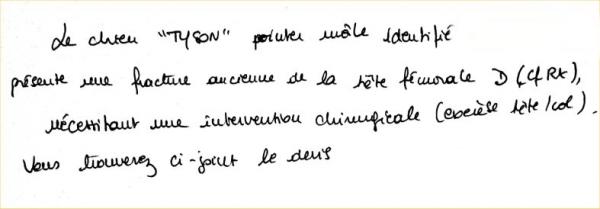 Le chien "TYSON" pointer mâle identifié
présente une fracture ancienne de la tête fémorale D (Cf RX),
nécessitant une intervention chirurgicale (exérèse tête/col).
Vous trouverez ci-joint le devis